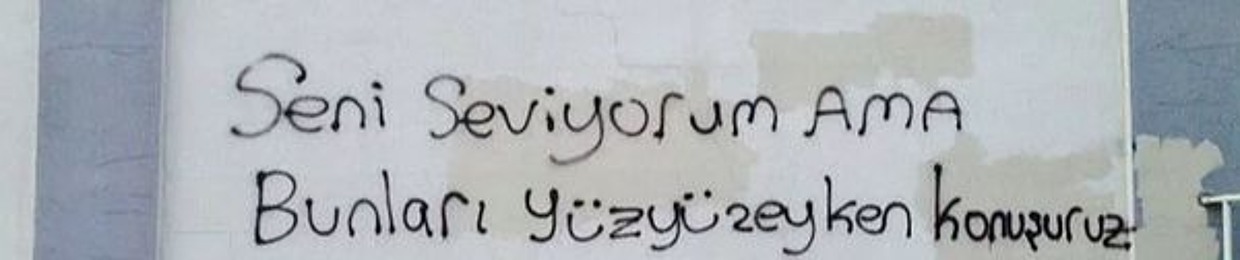 Seni Seviyorum AMA
Bunları yüzyüzeyken konuşuruz